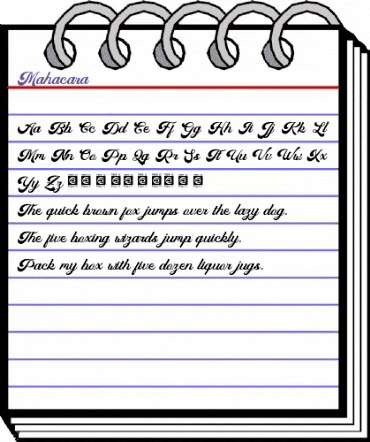 Mahacara
Aa Bb Cc Dd Ee Ff Gg Hh Ii Jj Kk Ll
Mm Nn Oo Pp Qq Rr Ss Tt Uu Vv Ww Xx
Yy Zz
The quick brown fox jumps over the lazy dog.
The five boxing wizards jump quickly.
Pack my box with five dozen liquor jugs.